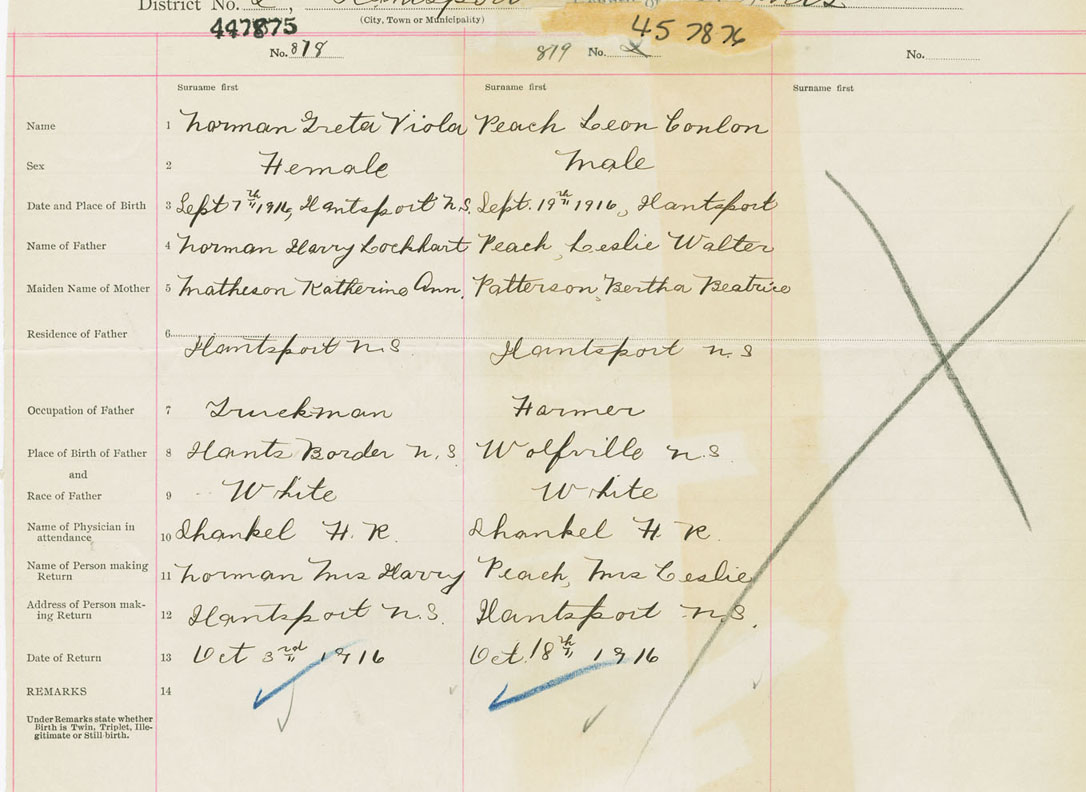 District No. 2, Hantsport
(City, Town or Municipality)
447875 457876
No. 878 879 No. No.
Surname first Surname first Surname first
Name 1 Norman Greta Viola Peach Leon Conlon
Sex 2 Female Male
Date and Place of Birth 3 Sept 7th 1916, Hantsport N.S. Sept. 19th 1916, Hantsport
Name of Father 4 Norman Harry Lockhart Peach, Leslie Walter
Maiden Name of Mother 5 Matheson Katherine Ann. Patterson, Bertha Beatrice
Residence of Father 6 Hantsport N.S Hantsport N.S
Occupation of Father 7 Truckman Farmer
Place of Birth of Father 8 Hants Border N.S Wolfville N.S.
and
Race of Father 9 White White
Name of Physician in
attendance 10 Shankel H. R. Shankel H. R.
Name of Person making
Return 11 Norman Mrs Harry Peach, Mrs Leslie
Address of Person mak-
ing Return 12 Hantsport N.S. Hantsport N.S.
Date of Return 13 Oct 3rd 1916 Oct. 18th 1916
REMARKS 14
Under Remarks state whether
Birth is Twin, Triplet, Ille-
gitimate or Still birth.